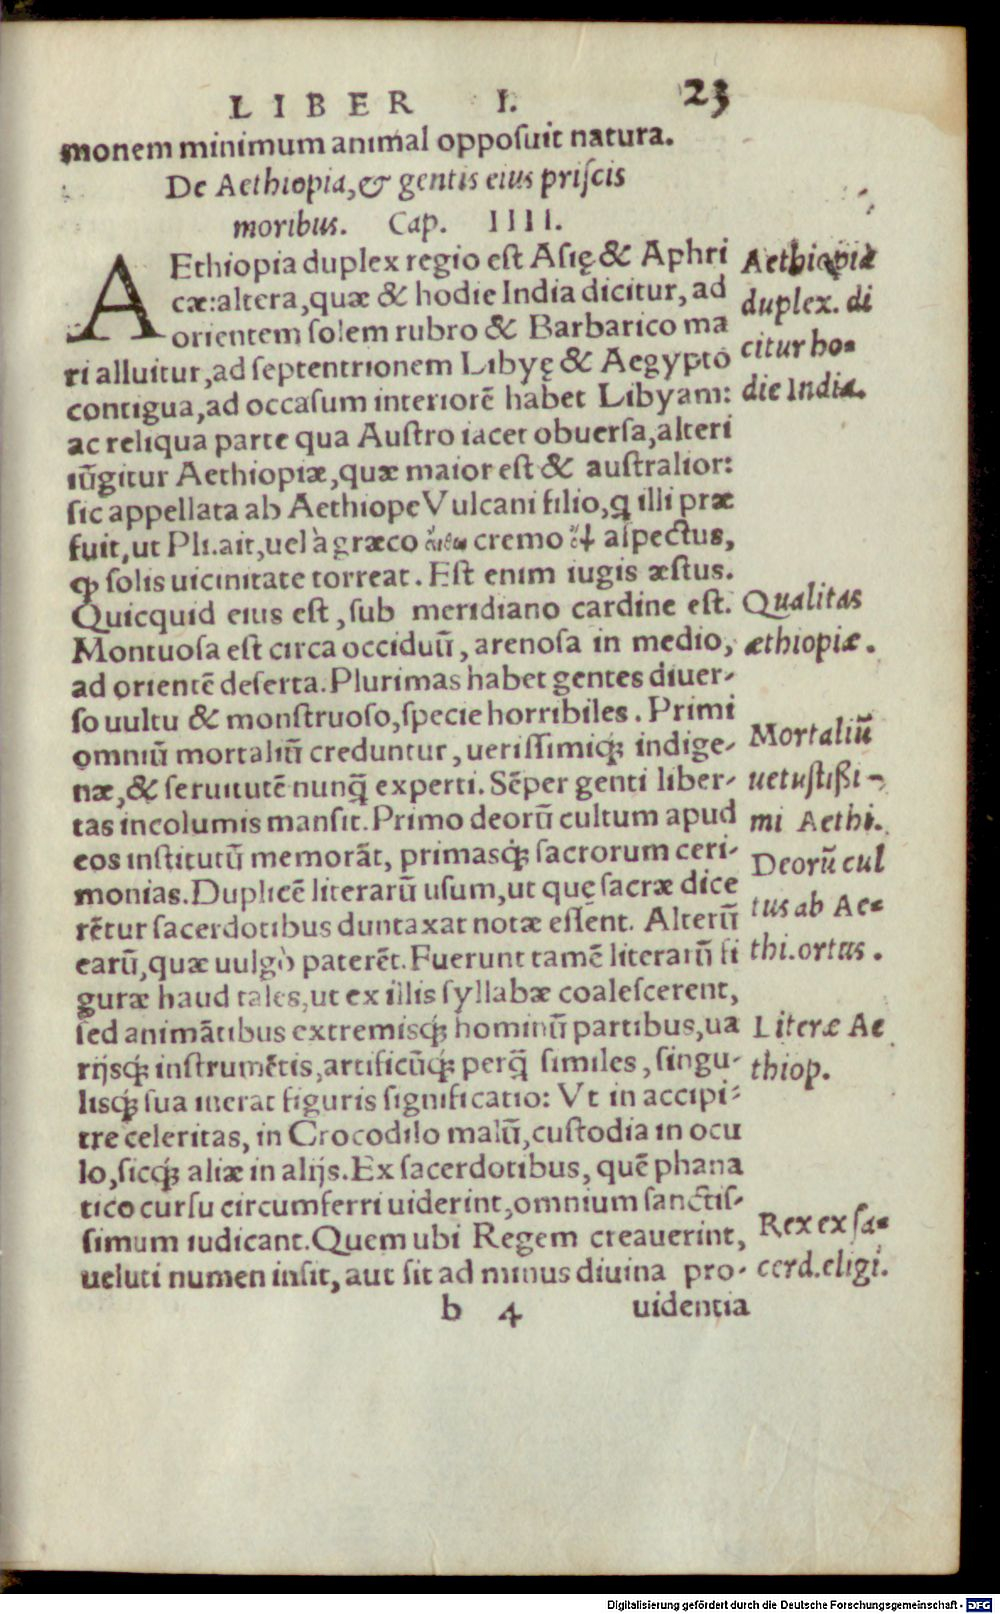 LIBER I. 23
monem minimum animal opposuit natura.
De Aethiopia, & gentis eius priſcis
moribus. Cap. IIII.
AEthiopia duplex regio eſt Aſię & Aphri
cæ: altera, quæ & hodie India dicitur, ad
orientem ſolem rubro & Barbarico ma
ri alluitur, ad ſeptentrionem Libyę & Aegypto
contigua, ad occaſum interiorē habet Libyam:
ac reliqua parte qua Auſtro iacet obuerſa, alteri
iūgitur Aethiopiæ, quæ maior eſt & auſtralior:
ſic appellata ab Aethiope Vulcani filio, q illi præ
fuit, ut Pli. ait, uel à græco cremo aſpectus,
ꝙ ſolis uicinitate torreat. Eſt enim iugis æſtus.
Quicquid eius eſt, ſub meridiano cardine eſt.
Montuoſa eſt circa occiduū, arenoſa in medio,
ad orientē deſerta. Plurimas habet gentes diuer-
ſo uultu & monſtruoſo, ſpecie horribiles. Primi
omniū mortaliū creduntur, ueriſſimiqꝫ indige-
næ, & ſeruitutē nunq̄ experti. Sēper genti liber-
tas incolumis manſit. Primo deorū cultum apud
eos inſtitutū memorāt, primasqꝫ ſacrorum ceri-
monias. Duplicē literarū uſum, ut quę ſacræ dice
rētur ſacerdotibus duntaxat notæ eſſent. Alterū
earū, quæ uulgò paterēt. Fuerunt tamē literarū fi
guræ haud tales, ut ex illis ſyllabæ coaleſcerent,
ſed animātibus extremisqꝫ hominū partibus, ua
rijsqꝫ inſtrumētis, artificūqꝫ perq̄ ſimiles, ſingu-
lisqꝫ ſua inerat figuris ſignificatio: Vt in accipi-
tre celeritas, in Crocodilo malū, cuſtodia in ocu
lo, ſicqꝫ aliæ in alijs. Ex ſacerdotibus, quē phana
tico curſu circumferri uiderint, omnium ſanctiſ-
ſimum iudicant. Quem ubi Regem creauerint,
ueluti numen inſit, aut ſit ad minus diuina pro-
b 4 uidentia
Aethiopia
duplex. di
citur ho-
die India.
Qualitas
æthiopiæ.
Mortaliū
uetuſtißi-
mi Aethi.
Deorū cul
tus ab Ae-
thi. ortus.
Literæ Ae
thiop.
Rex ex ſa-
cerd. eligi.
Digitalisierung gefördert durch die Deutsche Forschungsgemeinschaft - DFG